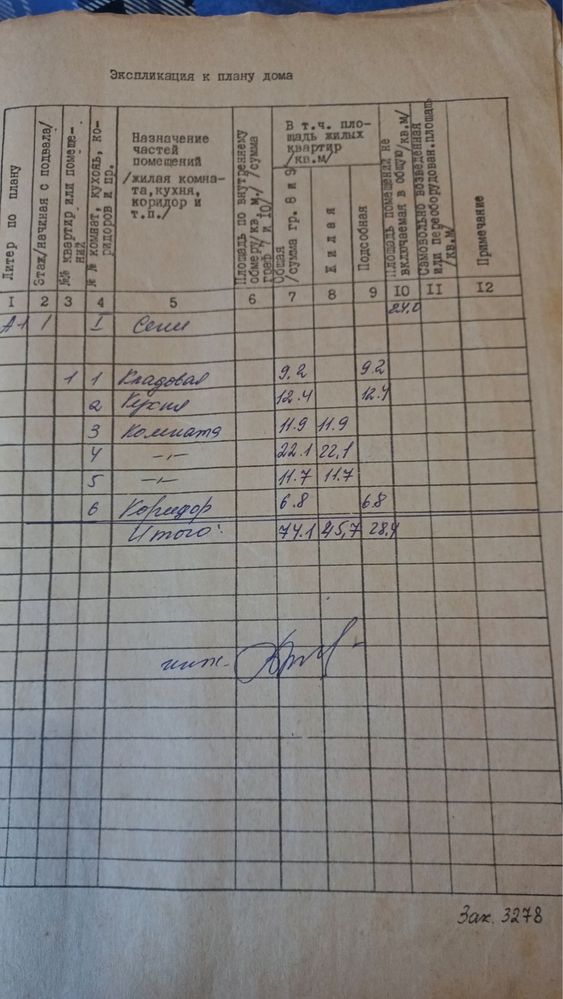 Экспликация к плану дома
Литер по плану
Этаж/начиная с подвала/
№№ квартир или помеще-
ний
№№ комнат, кухонь, ко-
ридоров и пр.
Назначение
частей
помещений
/жилая комна-
та,кухня,
коридор и
т.п./
Площадь по внутреннему
обмеру/кв.м./ /сумма
граф 7 и 10/
В т.ч. пло-
щадь жилых
квартир
/кв.м/
Общая
/сумма гр. 8 и 9/
Жилая
Подсобная
Площадь помещений не
включаемая в общую/кв.м/
Самовольно возведенная
или переоборудован.площадь
/кв.м/
Примечание
I 2 3 4 5 6 7 8 9 10 II I2
А-1 1 I Сени 24,0
1 1 Кладовая 9.2 9.2
2 Кухня 12.4 12.4
3 Комната 11.9 11.9
4 -"- 22.1 22,1
5 -"- 11.7 11.7
6 Коридор 6.8 6.8
Итого: 74.1 45,7 28.4
инж.
Зак. 3278